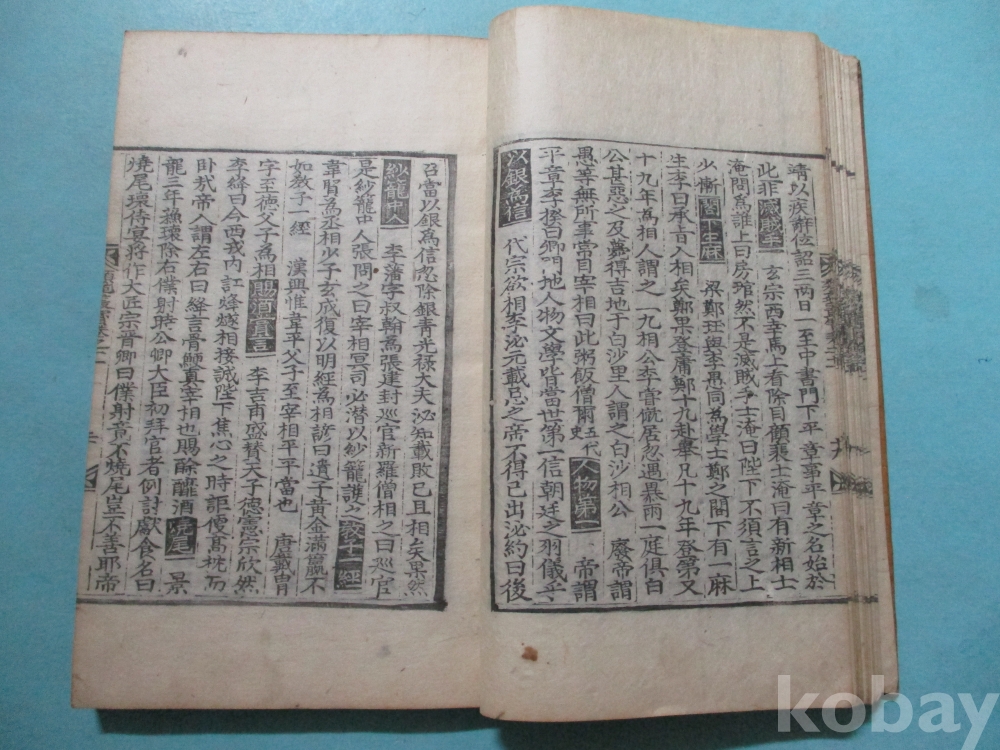 靖以疾辭位詔三兩日一至中書門下平章事平章之名始於
此非滅賊才 玄宗西幸馬上看除目顧裴士淹曰有新相士
淹問爲誰上曰房琯然不是滅賊手士淹曰陛下不須言之上
少慚閣下生麻 梁鄭珏與李愚同爲學士鄭之閣下有一麻
生李曰承旨入相矣鄭果登庸鄭十九赴擧凡十九年登第又
十九年爲相人謂之一九相公李嘗僦居忽遇暴雨一庭俱白
公甚惡之及夢得吉地于白沙里人謂之白沙相公 廢帝謂
愚等無所事常目宰相曰此粥飯僧爾五代史人物第一 帝謂
平章李揆曰卿門地人物文學皆當世第一信朝廷之羽儀乎
以銀爲信 代宗欲相李泌元載忌之帝不得已出泌約曰後
召當以銀爲信忽除銀靑光祿大夫泌知載敗已且相矣果然
紗籠中人 李藩字叔翰爲張建封巡官新羅僧相之曰巡官
是紗籠中人張問之曰宰相冥司必潛以紗籠護之敎子一經
韋賢爲丞相少子玄成復以明經爲相諺曰遺子黃金滿籯不
如敎子一經 漢興惟韋平父子至宰相平平當也 唐戴胄
字至德父子爲相賜酒賞言 李吉甫盛贊天子德憲宗欣然
李絳曰今西戎內訌烽燧相接誠陛下焦心之時詎便高枕而
卧哉帝入謂左右曰絳言骨鯁眞宰相也賜酴醿酒燒尾 景
龍三年蘇瓌除右僕射時公卿大臣初拜官者例討獻食名曰
燒尾瓌侍宴將作大匠宗晉卿曰僕射竟不燒尾豈不善耶帝
kobay